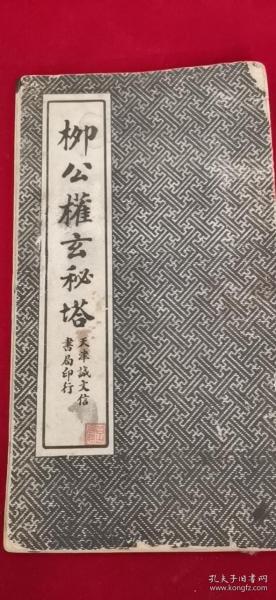 柳公權玄秘塔
天津誠文信
書局印行
孔夫子旧书网